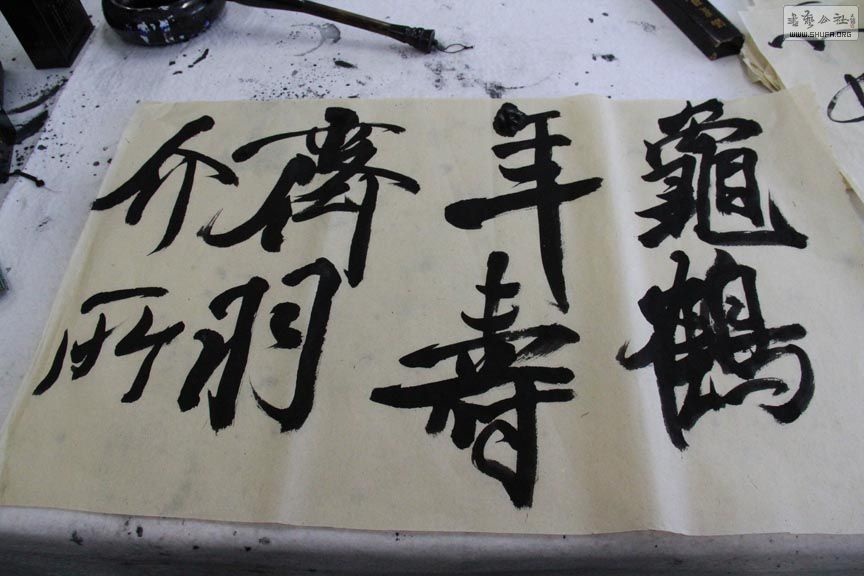 龜鶴
年壽
齊羽
介所
書藝公社
WWW.SHUFA.ORG